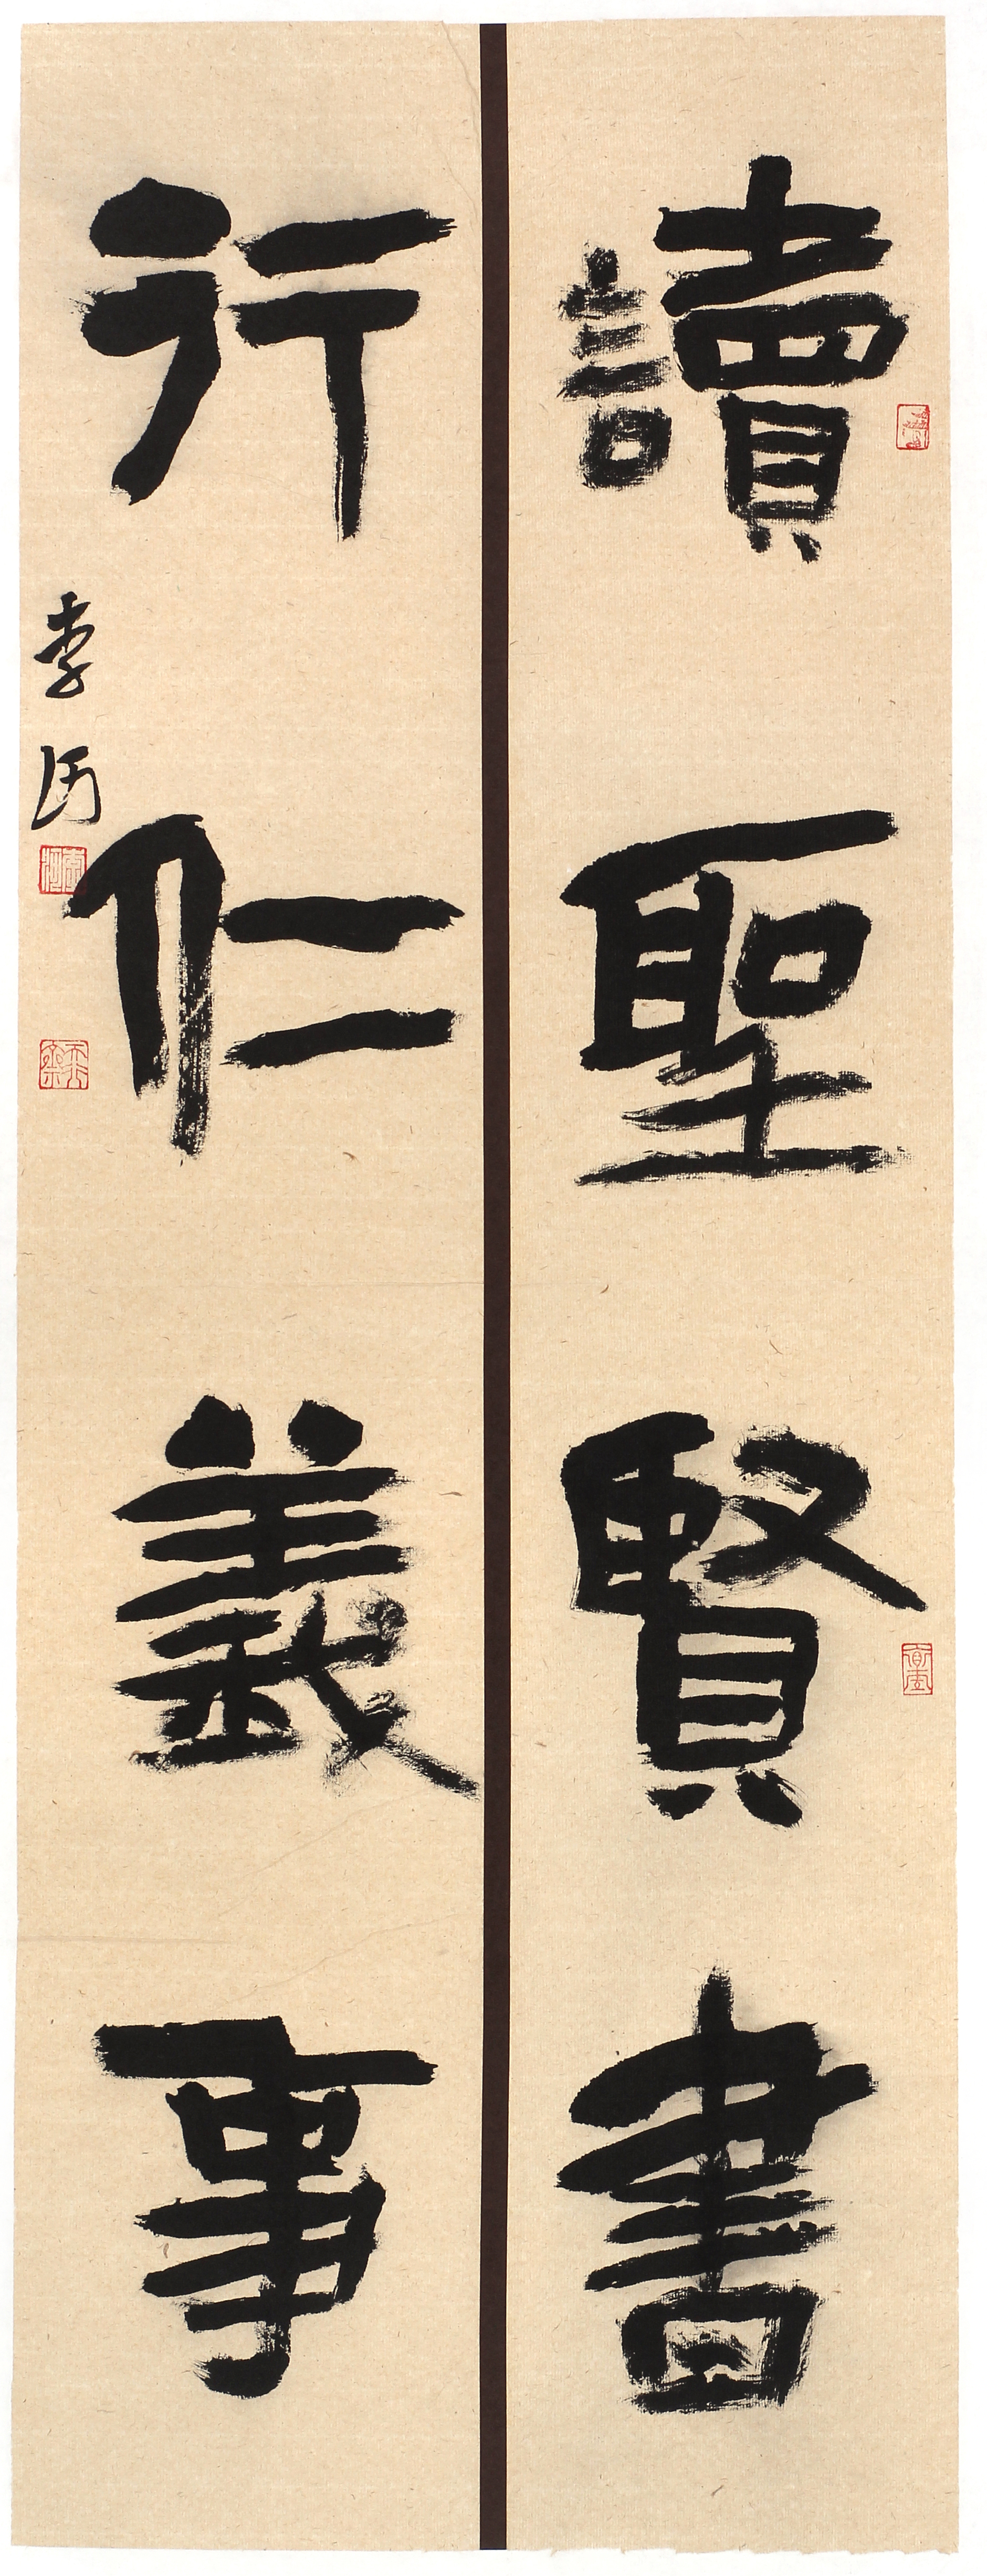 讀聖賢書
行仁義事